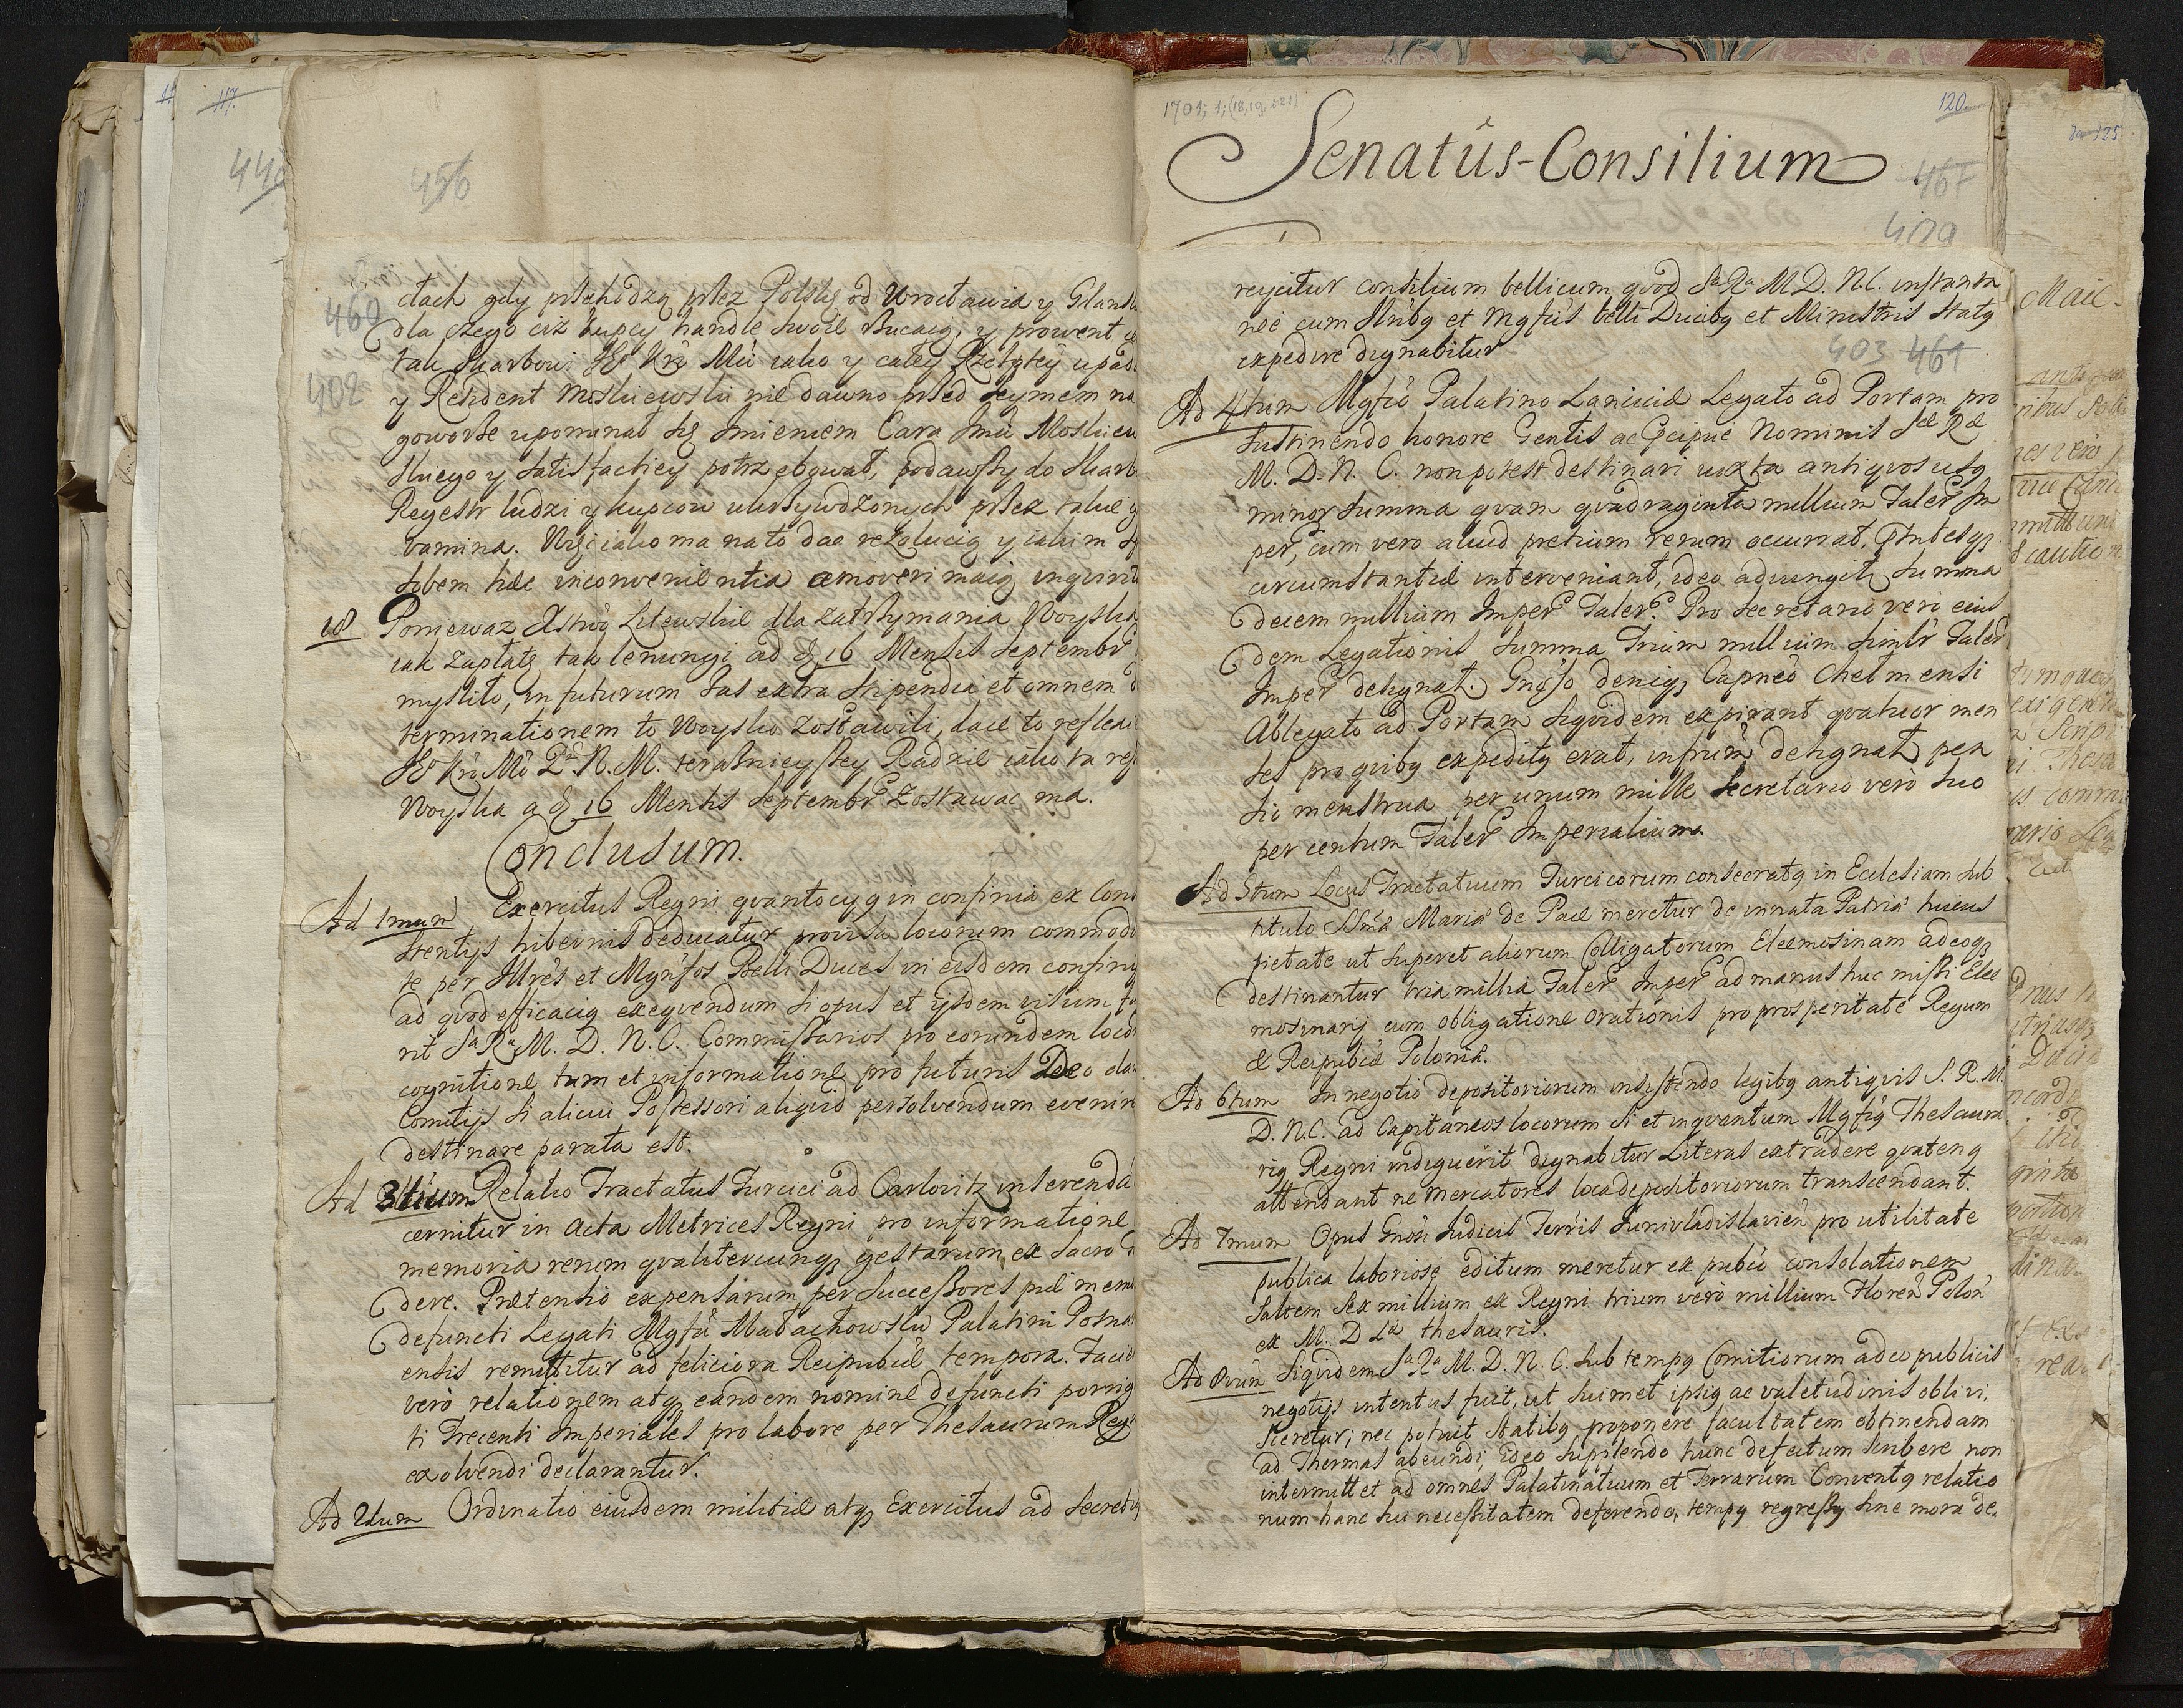 456
460
ctach gdy przchodzą przez Polskę od Wrocławia y Gdansk
dla czego ciż kupcy handle swoie
tak Skarbowi JKr Mci iako y całey Rzeptey upad
402
y Rezident Moskiewski nie dawno przed Seymem na
goworze upominał się Imieniem Cara Jmci Moskiew
skiego y satisfactiey potrzebował, podawszy do Skarb
Regestr ludzi y kupcow ukrzywdzonych przez takie g
vamina. Więc iako ma na to dac rezolucią y iakim s
sobem hae inconvenientia amoveri maią inquirit
18 Poniewaz Litewskie dla zatrzymania Woyska
iak zapłatę tak lenungi ad d. 16 Mensis Septembr
myslito, in futurum zas extra stipendia et omnem d
terminationem to Woysko zostawili, daie to reflex
JKr Mc P. N. M. terasnieyszey Radzie iako ta res
Woyska a d. 16 Mensis Septembr zostawac ma.
Conclusum.
Ad 1mum Exercitus Regni quantocyq in confinia ex Cons
stentijs hibernis deducatur provisa locorum commodi
te per Illres et Mgnfcos Belli Duces in eisdem confinij
ad quod efficaciq exequendum si opus et ijsdem visum fu
rit Sa Ra M. D. N. C. Commissarios pro eorundem loco
cognitione tum et informatione pro futuris Deo dan
Comitijs si alicui Possessori aliquid persolvendum evenir
destinare parata est.
Ad 3tium Relatio Tractatus Turcici ad Carlovitz inserenda
cernitur in Acta Metrices Regni pro informatione
memoria rerum qualitercunq gestarum, ex Sacro
dere. Praetensio expensarum per Successores pie mem
defuncti Legati Mgfci Małachowski Palatini Posna
ensis remittitur ad feliciora Reipublcae tempora. Facie
vero relationem atq eandem nomine defuncti porrig
ti Trecenti Imperiales pro labore per Thesaurum Reg
exolvendi declarantur.
Ad 2dum Ordinatio eiusdem militiae atq Exercitus ad Secret
1701; 1; (18, 19, 121)
120
Senatûs-Consilium
467
409
reijcitur consilium bellicum quod Sa Ra M D. N. C. instanter
nec cum Illribq et Mgfcis belli Ducibq et Ministris Statq
expedire dignabitur
403 461
Ad 4tum Mgfco Palatino Lanciciae Legato ad Portam pro
sustinendo honore Gentis ac pcipue Nominis Sae Rae
M. D. N. C. non potest destinari iuxta antiquos usq
minor summa quam quadraginta millium Taler Im
per, cum vero aliud pretium rerum occurrat,
circumstantiae interveniant, ideo adiungit summa
decem millium Imper Taler. Pro Secretario vero eius
dem Legationis summa Trium millium simlr Taler
Imper designat. Gnoso deniq Capneo Chelmensi
Ablegato ad Portam siquidem expirant quatuor men
ses pro quibq expeditq erat, designat pen
sio menstrua per unum mille Secretario vero suo
per centum Taler Imperialium.
Ad 5tum Locus Tractatuum Turcicorum consecratq in Ecclesiam sub
titulo SSmae Mariae de Pace meretur de innata Patriae huius
pietate ut superet aliorum Colligatorum Eleemosinam adeoq
destinantur tria millia Taler Imper ad manus huc missi Elee
mosinarij cum obligatione orationis pro prosperitate Regum
& Reipublcae Poloniae.
Ad 6tum In negotio depositoriorum insistendo legibq antiquis S. R. M.
D. N. C. ad Capitaneos locorum si et inquantum Mgfcq Thesaura
riq Regni indiguerit dignabitur Literas extradere quatenq
attendant ne Mercatores loca depositoriorum transcendant.
Ad 7mum Opus Gnosi Judicis Terris Junivladislavien pro utilitate
publica laboriose editum meretur ex publco consolationem
saltem sex millium ex Regni trium vero millium Floren Polon
ex M. D Lae thesauris.
Ad 8vum Siquidem Sa Ra M. D. N. C. sub tempq Comitiorum adeo publicis
negotijs intentus fuit, ut suimet ipsiq ac valetudinis oblivi
sceretur; nec potuit Statibq proponere facultatem obtinendam
ad Thermas abeundi, ideo suplendo hunc defectum scribere non
intermittet ad omnes Palatinatuum et Terrarum Conventq relatio
num hanc sui necessitatem deferendo, tempq regressq sine mora de.